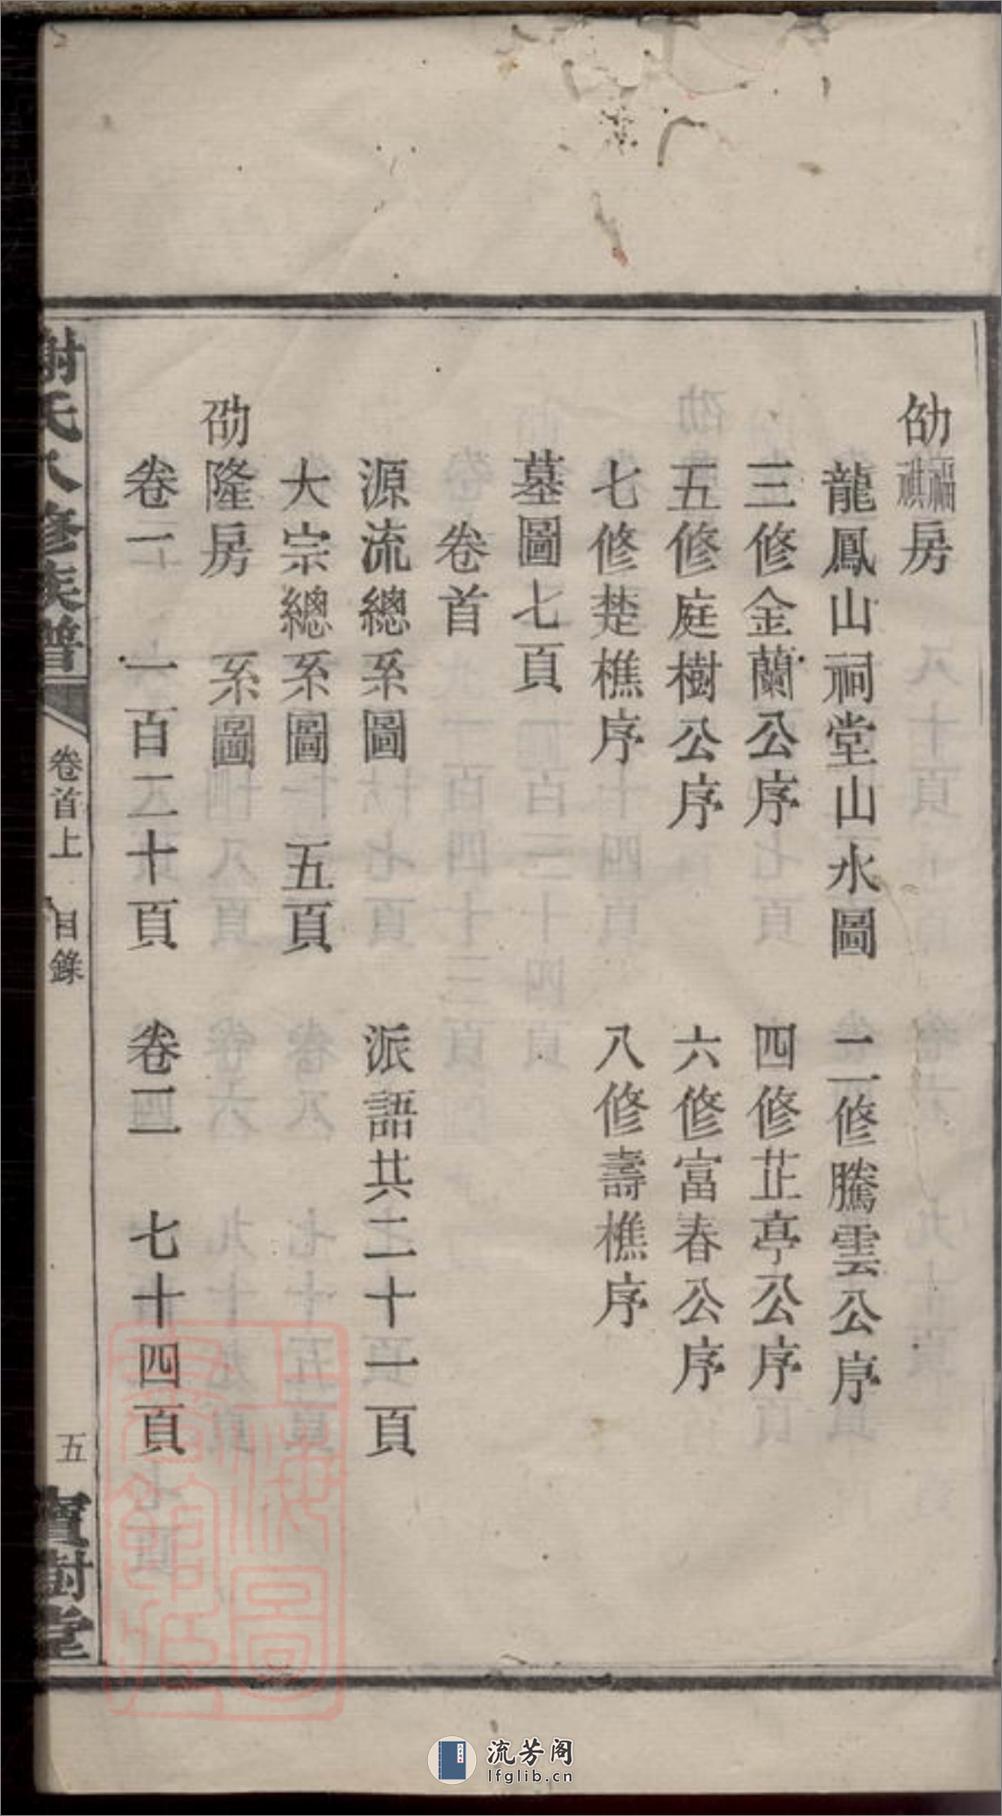 劭福祺房
龍鳳山祠堂山水圖　二修騰雲公序
三修金蘭公序　四修芷亭公序
五修庭樹公序　六修富春公序
七修楚樵序　八修壽樵序
墓圖七頁
卷首
源流總系圖　派語共二十一頁
大宗總系圖　五頁
劭隆房　系圖
卷一　一百二十頁　卷二　七十四頁
謝氏八修族譜　卷首上　目錄　五　寶樹堂
上海圖書館藏
流芳阁
lfglib.cn